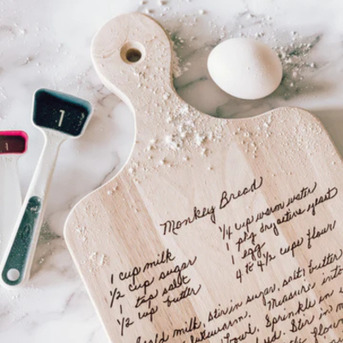 1
Monkey Bread
1 cup milk
1/2 cup sugar
1 tsp salt
1/2 cup butter
1/4 cup warm water
1 pkg dry active yeast
1 egg
4 to 4 1/2 cups flour
milk, stir in sugar, salt, butter
lukewarm. Measure into
bowl. Sprinkle in
Stir in
the flour